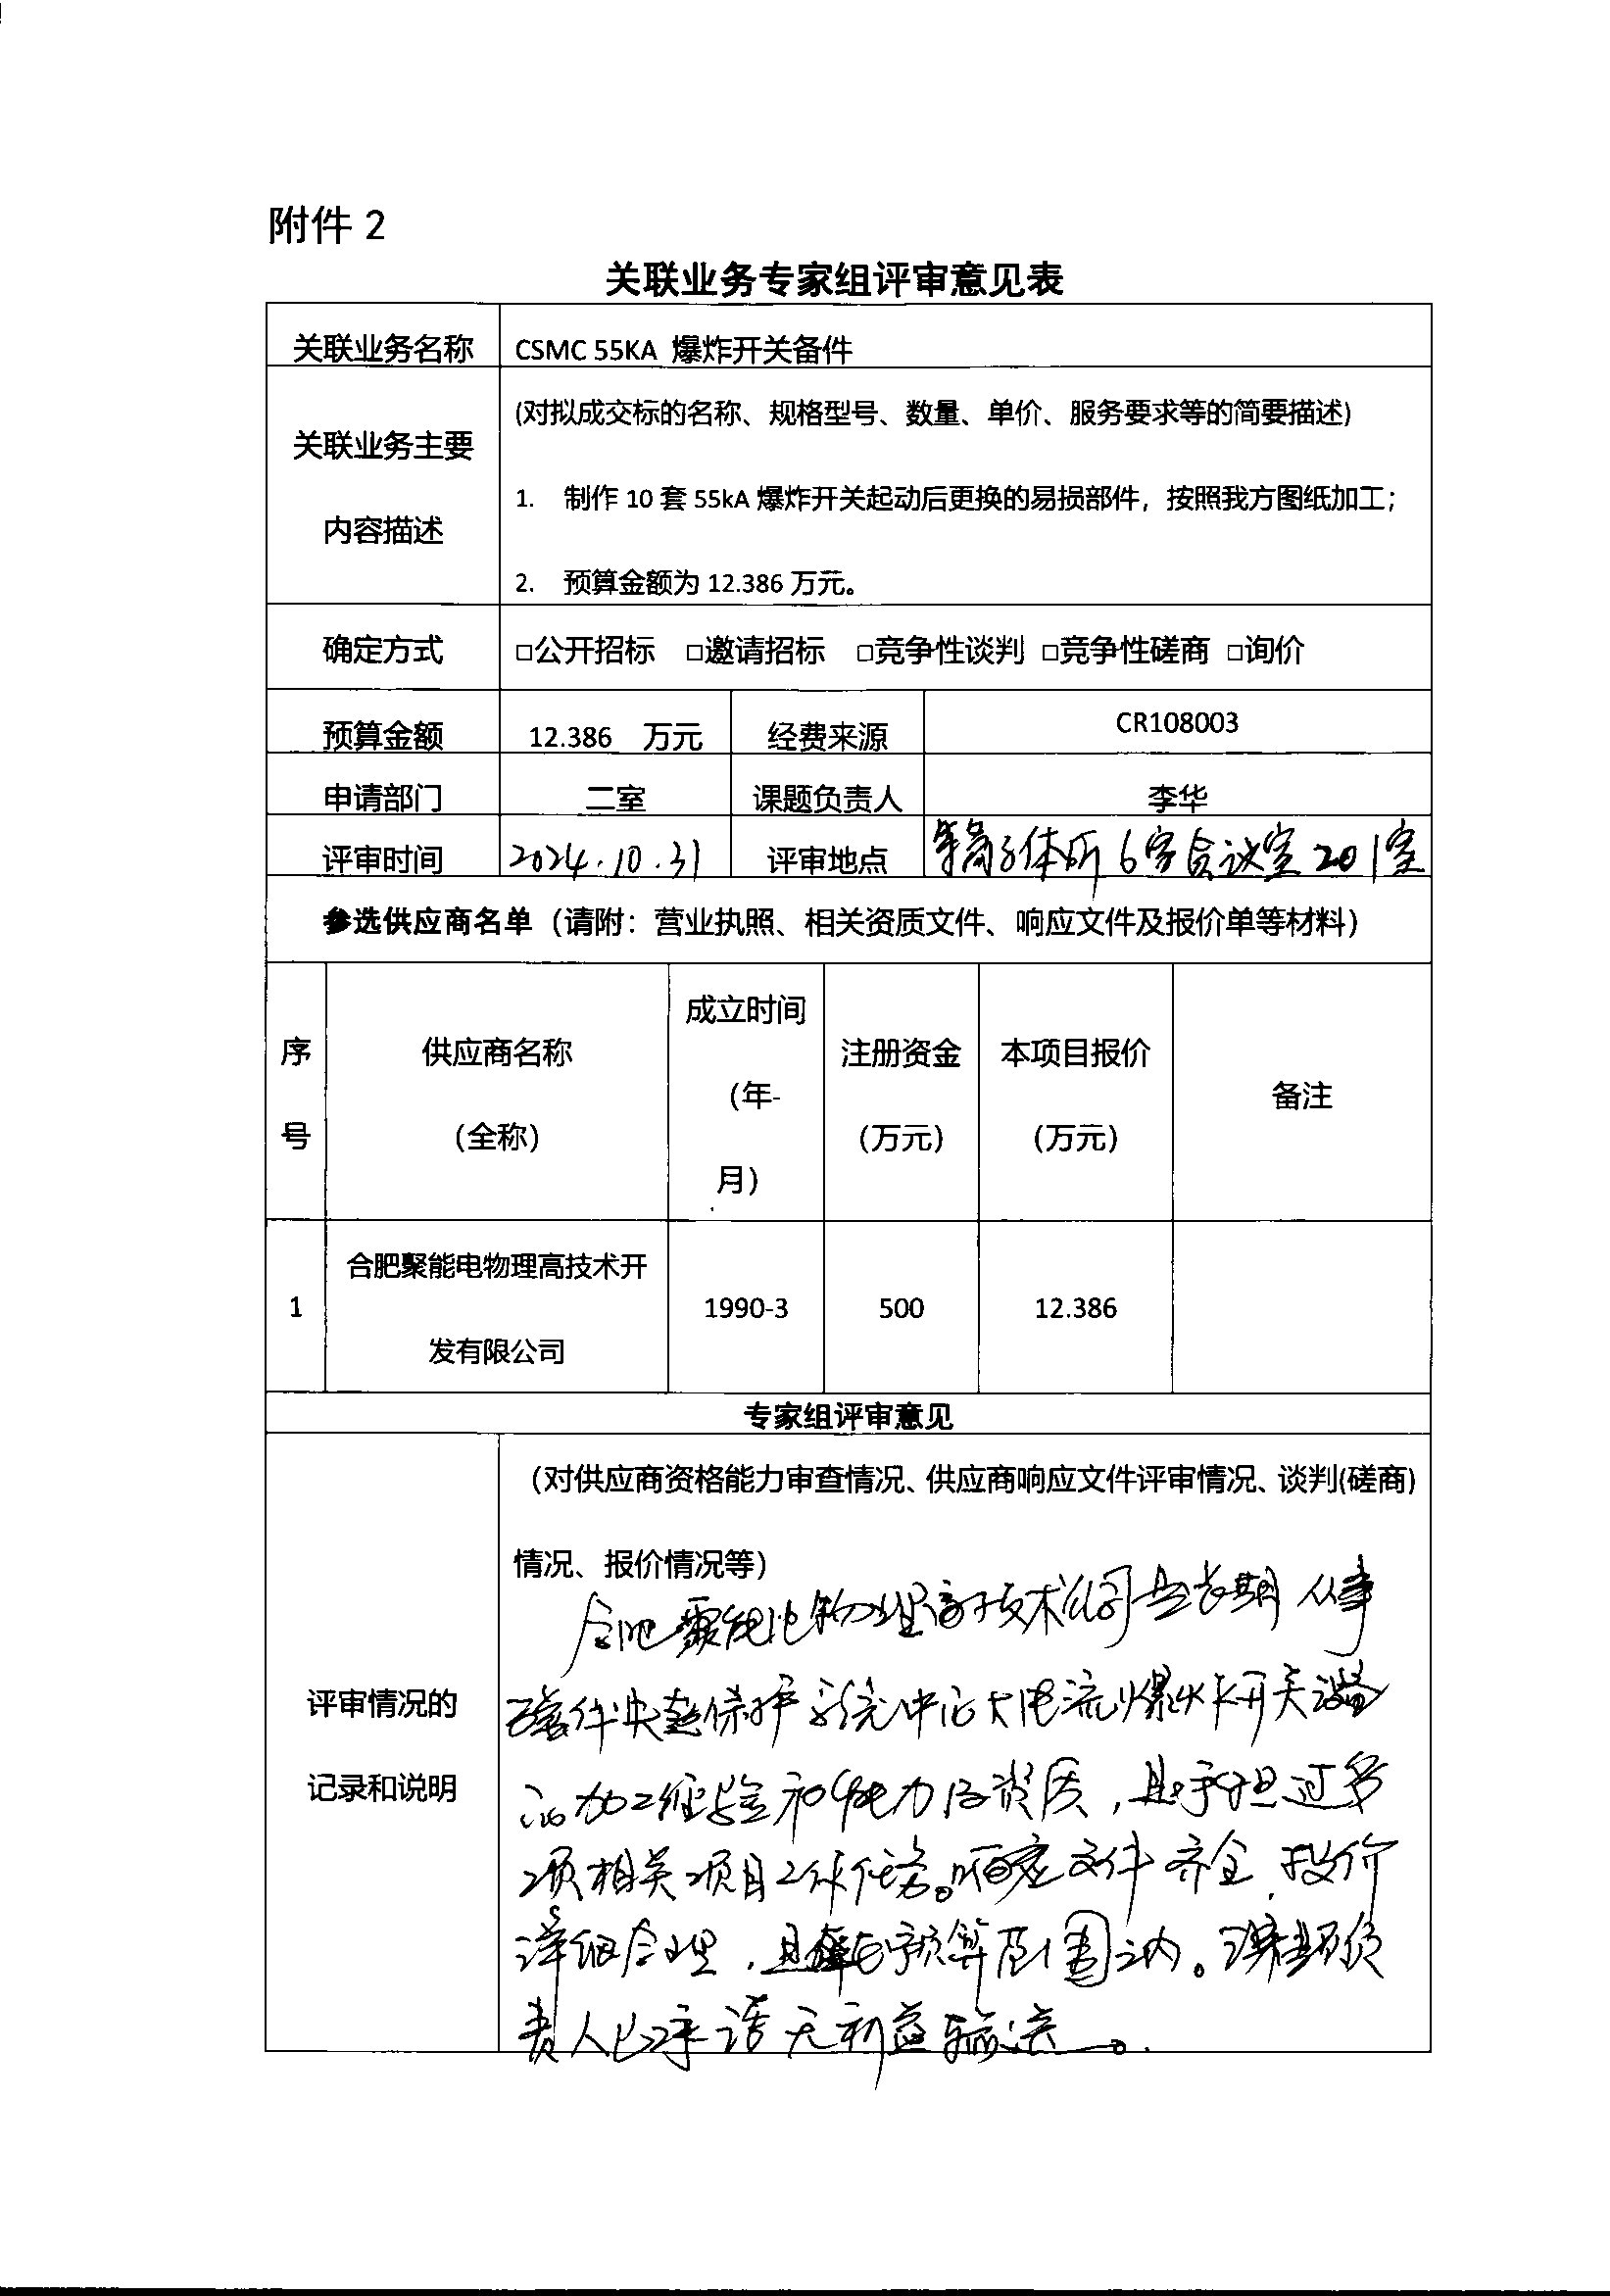 附件 2
关联业务专家组评审意见表
关联业务名称 CSMC 55KA 爆炸开关备件
关联业务主要
内容描述
(对拟成交标的名称、规格型号、数量、单价、服务要求等的简要描述)
1. 制作 10 套 55kA 爆炸开关起动后更换的易损部件，按照我方图纸加工；
2. 预算金额为 12.386 万元。
确定方式 □公开招标 □邀请招标 □竞争性谈判 □竞争性磋商 □询价
预算金额 12.386 万元 经费来源 CR108003
申请部门 二室 课题负责人 李华
评审时间 2024.10.31 评审地点 等离子体所 6室会议室 201室
参选供应商名单（请附：营业执照、相关资质文件、响应文件及报价单等材料）
序
号
供应商名称
（全称）
成立时间
（年-
月）
注册资金
（万元）
本项目报价
（万元）
备注
1
合肥聚能电物理高技术开
发有限公司
1990-3
500
12.386
专家组评审意见
评审情况的
记录和说明
（对供应商资格能力审查情况、供应商响应文件评审情况、谈判(磋商)
情况、报价情况等）
合肥聚能电物理高技术公司是长期从事
磁体失超保护系统中的大电流爆炸开关设备
的加工经验和能力及资质，且承担过多
项相关项目工作任务。响应文件齐全，报价
详细合理，且在预算范围之内。课题负
责人已承诺无利益输送。